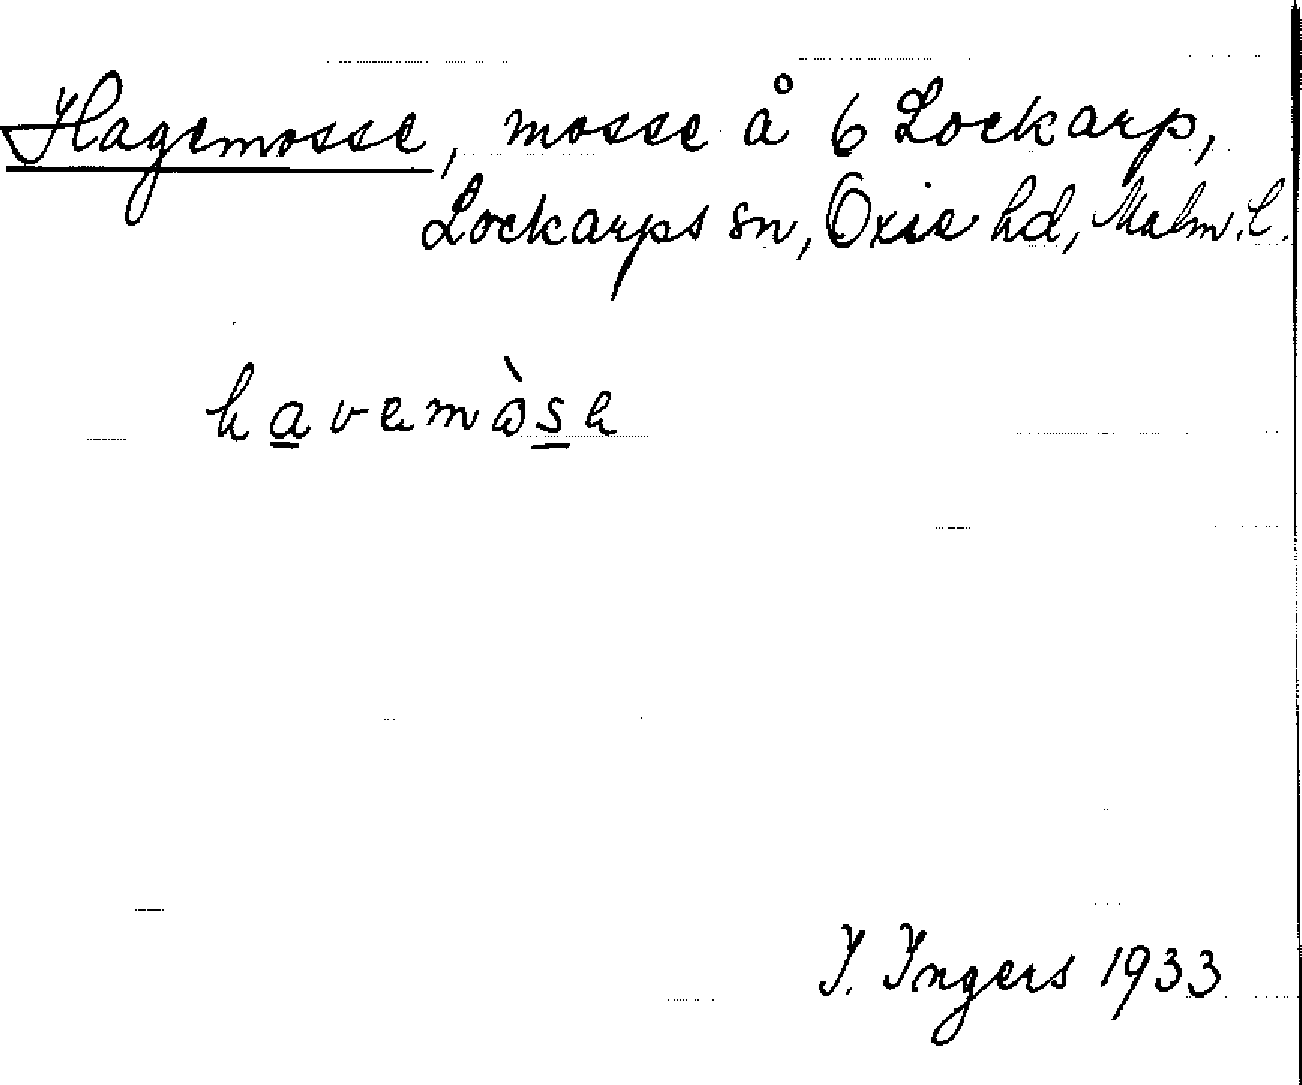 Hagemosse, mosse å 6 Lockarp,
Lockarps sn, Oxie hd, Malm. l.
havemòse
I. Ingers 1933